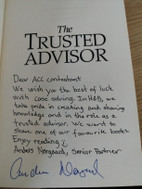 The
TRUSTED
ADVISOR
Dear ACC contestant
We wish you the best of luck
with case solving. In H&B, we
take pride in creating and sharing
knowledge and in the role as a
trusted advisor. We want to
share one of our favourite books.
Enjoy reading!
Anders Nørgaard, Senior Partner